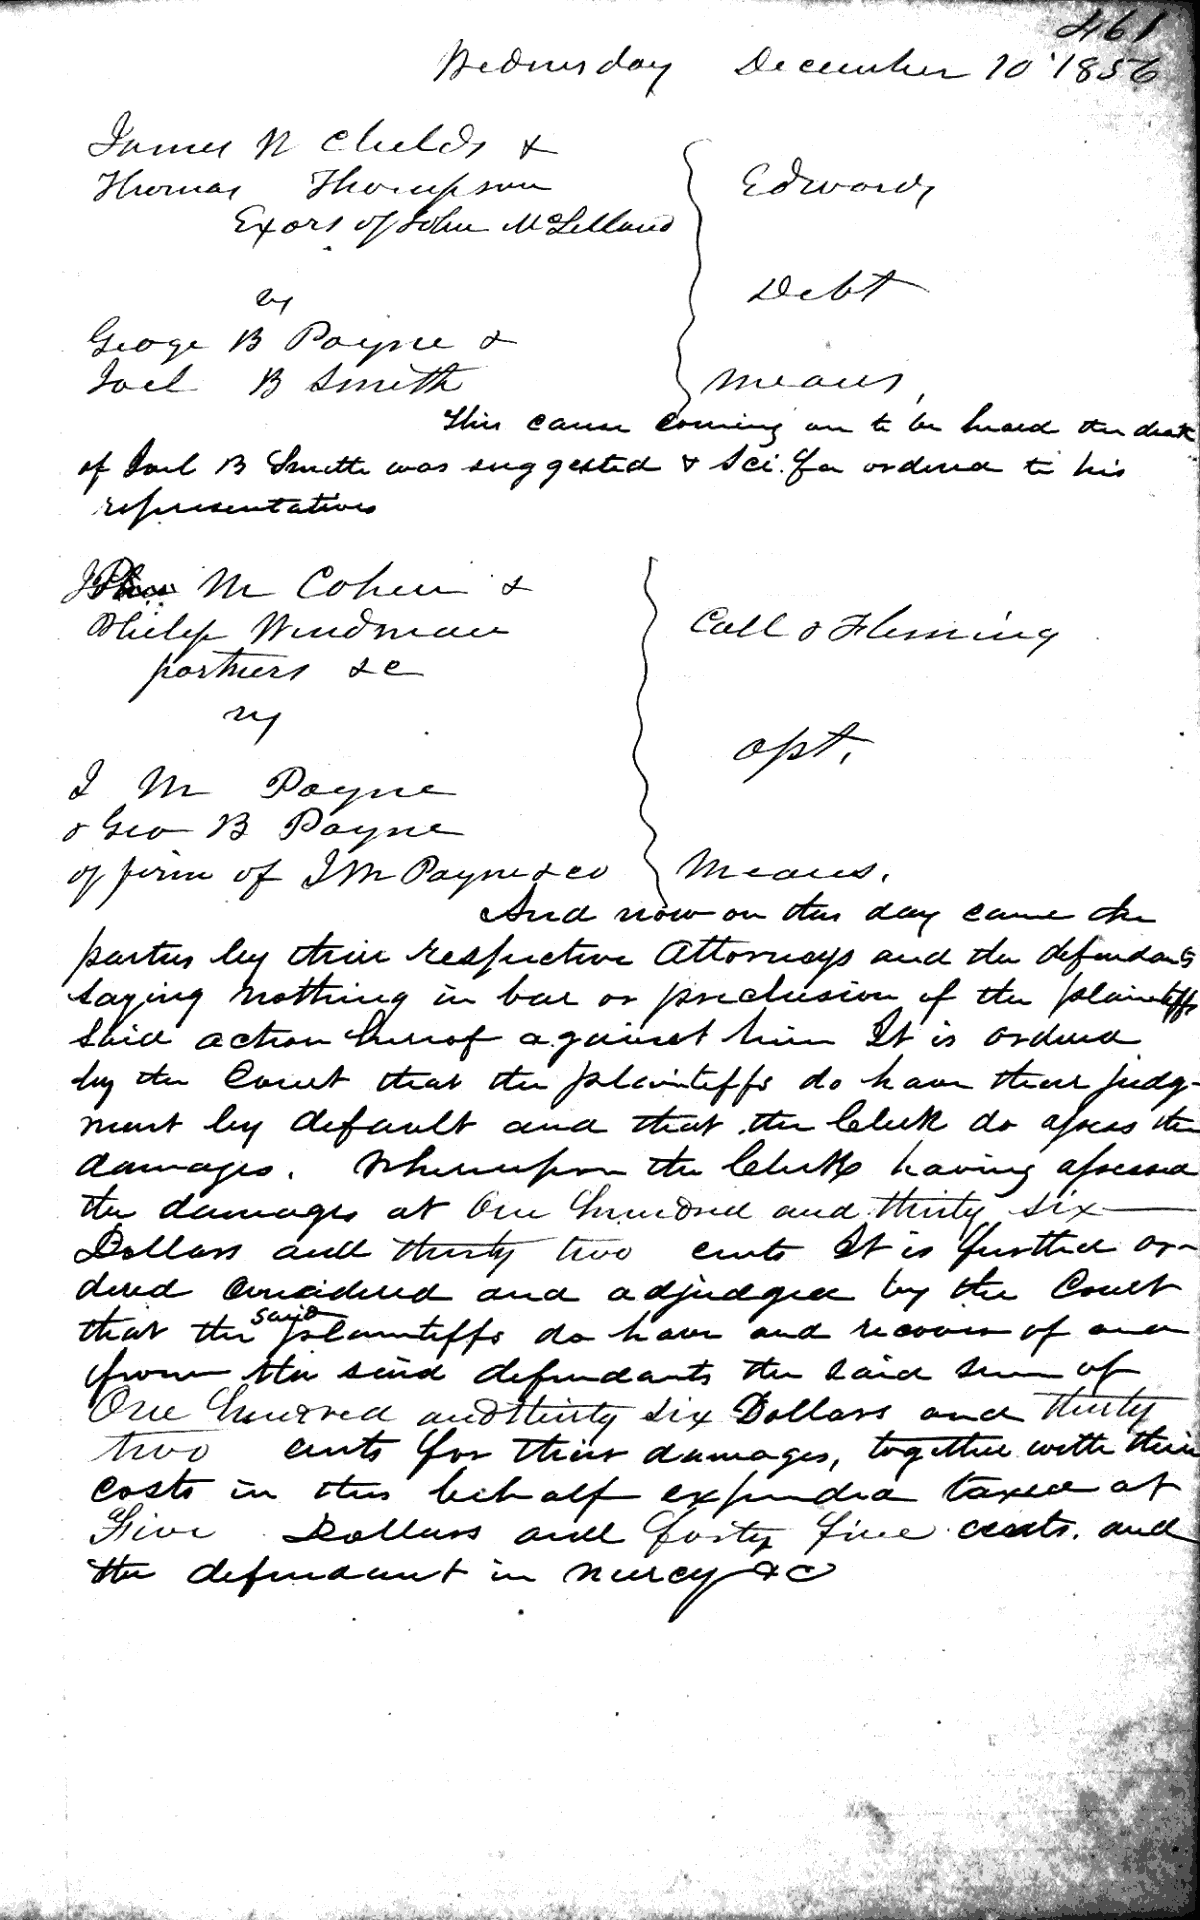 461
Wednesday December 10 1856
James N Childs &
Thomas Thompson
Exors of John McLelland
vs
Geoge B Payne &
Joel B Smith
Edwards
Debt
Means,
This cause coming on to be heard the death
of Joel B Smith was suggested & Sci. fa ordered to his
representatives
M Cohen &
Philip Windman
partners &c
vs
J M Payne
& Geo B Payne
of firm of J M Payne & co
Call & Fleming
apt.
Means.
And now on this day came the
parties by their respective Attorneys and the defendants
saying nothing in bar or preclusion of the plaintiffs
said action hereof against him It is ordered
by the Court that the plaintiffs do have their judg-
ment by default and that the Clerk do assess the
damages. Whereupon the Clerk having assessed
the damages at One hundred and thirty six
Dollars and thirty two cents It is further or-
dered considered and adjudged by the Court
that the said plaintiffs do have and recover of and
from the said defendants the said sum of
One hundred and thirty six Dollars and thirty
two cents for their damages, together with their
costs in this behalf expended taxed at
Five Dollars and forty five cents. and
the defendant in mercy &c